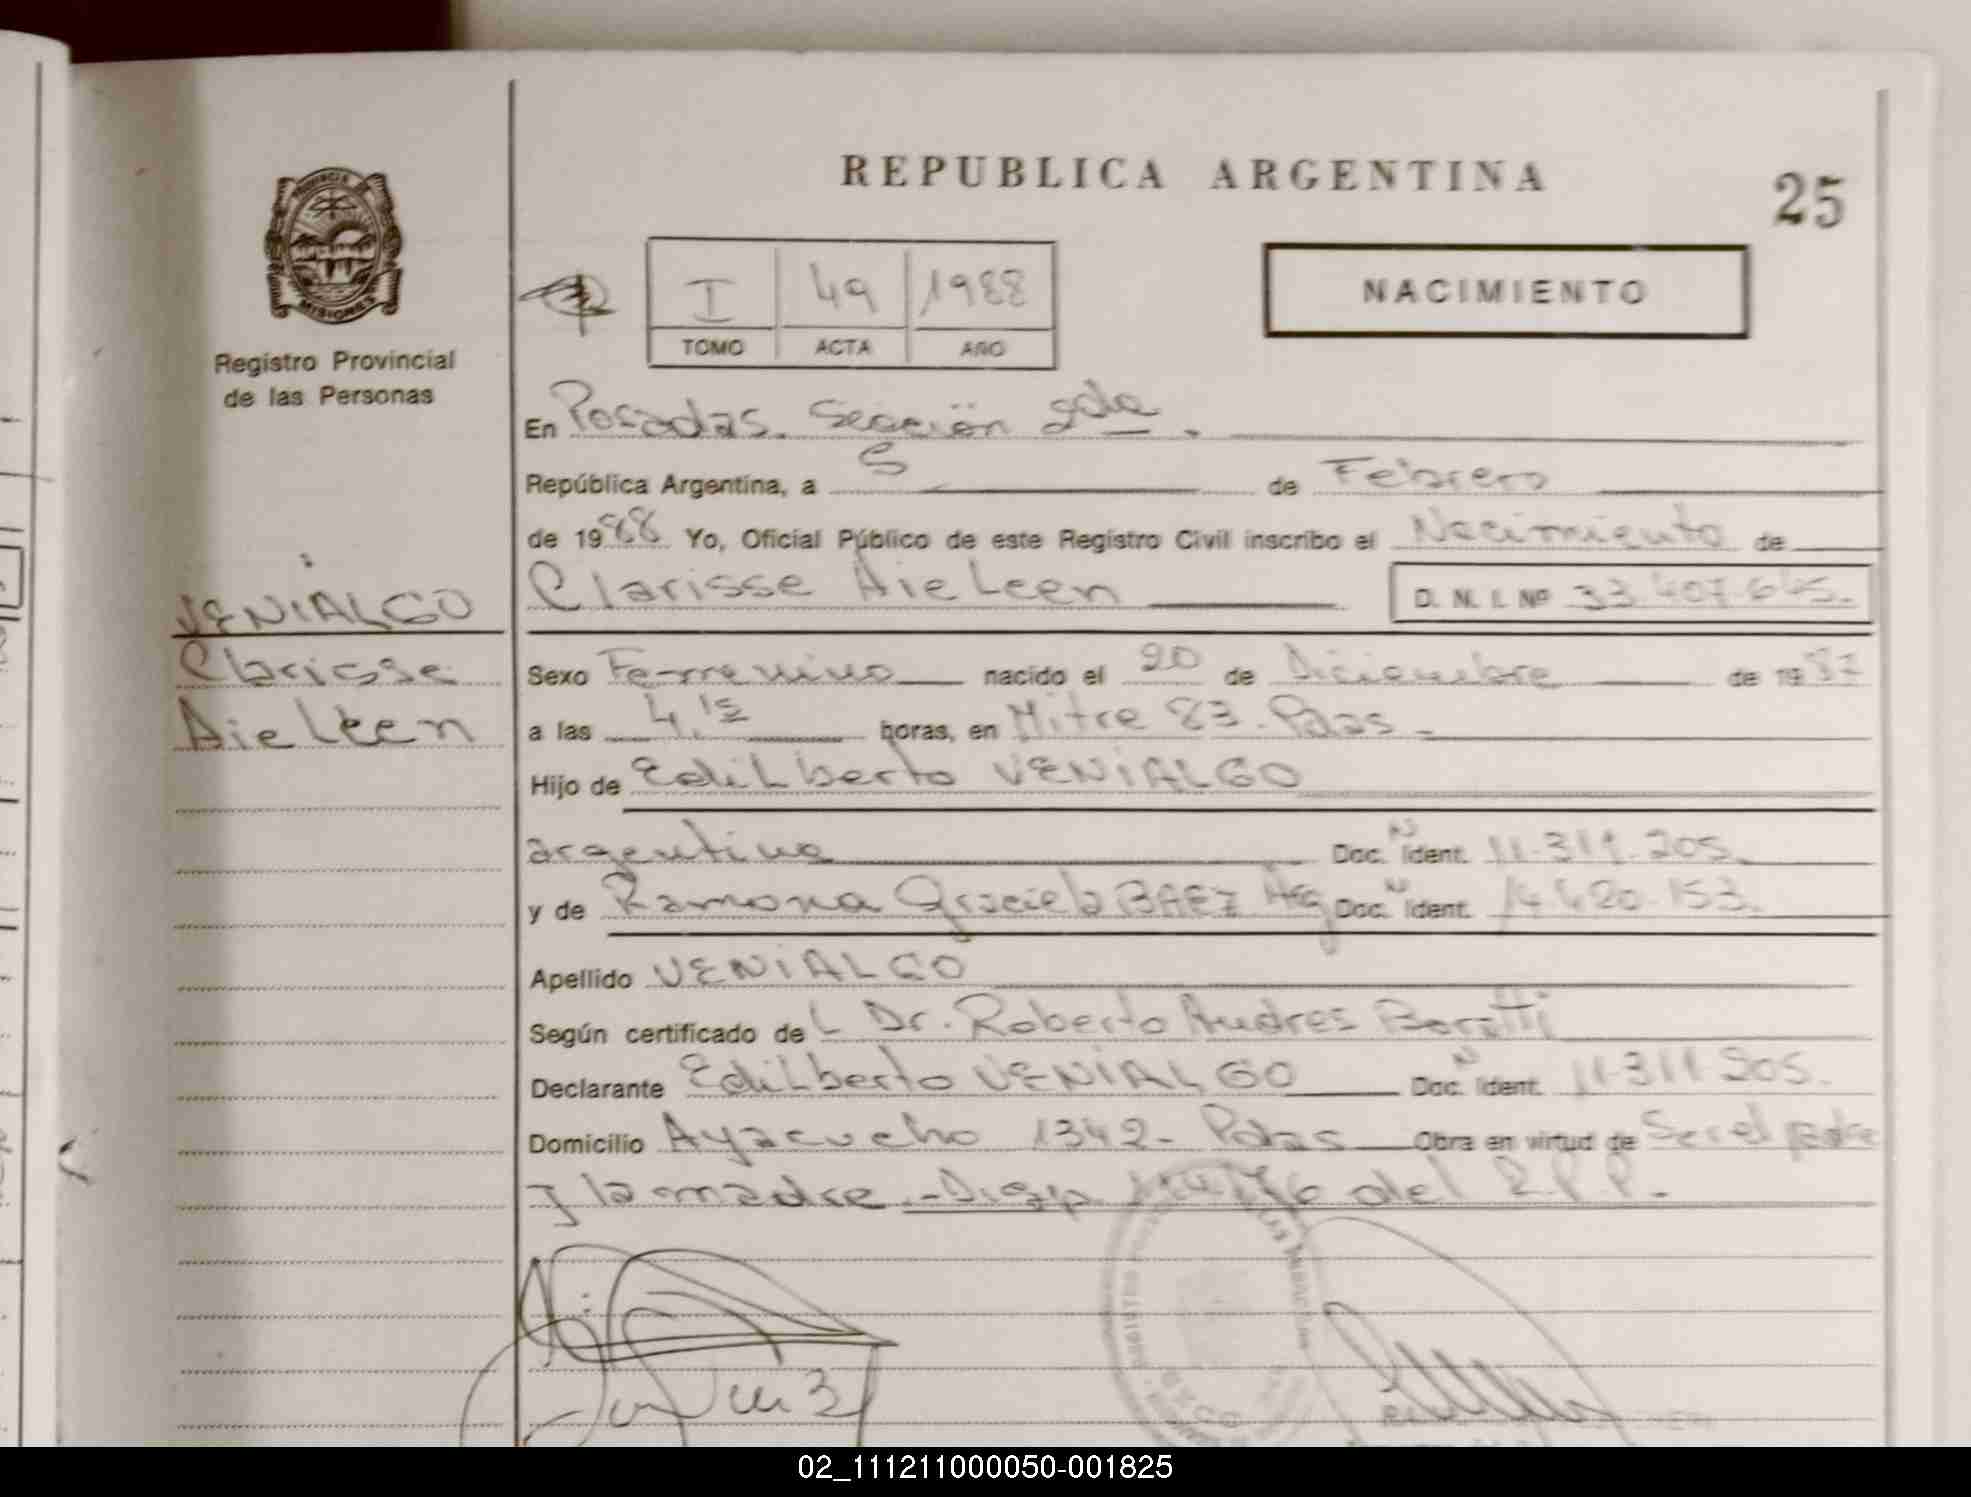 REPUBLICA ARGENTINA
25
PROVINCIA DE
MISIONES
Registro Provincial
de las Personas
I 49 1988
TOMO ACTA AÑO
NACIMIENTO
En Posadas. Sección 2da.
República Argentina, a 5 de Febrero
de 1988 Yo, Oficial Público de este Registro Civil inscribo el Nacimiento de
VENIALGO
Clarisse
Aieleen
Clarisse Aieleen D. N. I. Nº 33.407.645.
Sexo Femenino nacido el 20 de Diciembre de 1987
a las 4,15 horas, en Mitre 83. Pdas.
Hijo de Edilberto VENIALGO
argentino Doc. N Ident. 11.311.205.
y de Ramona Graciela BAEZ Arg Doc. N Ident. 14.420.153.
Apellido VENIALGO
Según certificado de L Dr. Roberto Andres
Declarante Edilberto VENIALGO Doc. N Ident. 11.311.205.
Domicilio Ayacucho 1342- Pdas Obra en virtud de Ser el padre
y la madre.-Disp. del R.P.P.
02_111211000050-001825